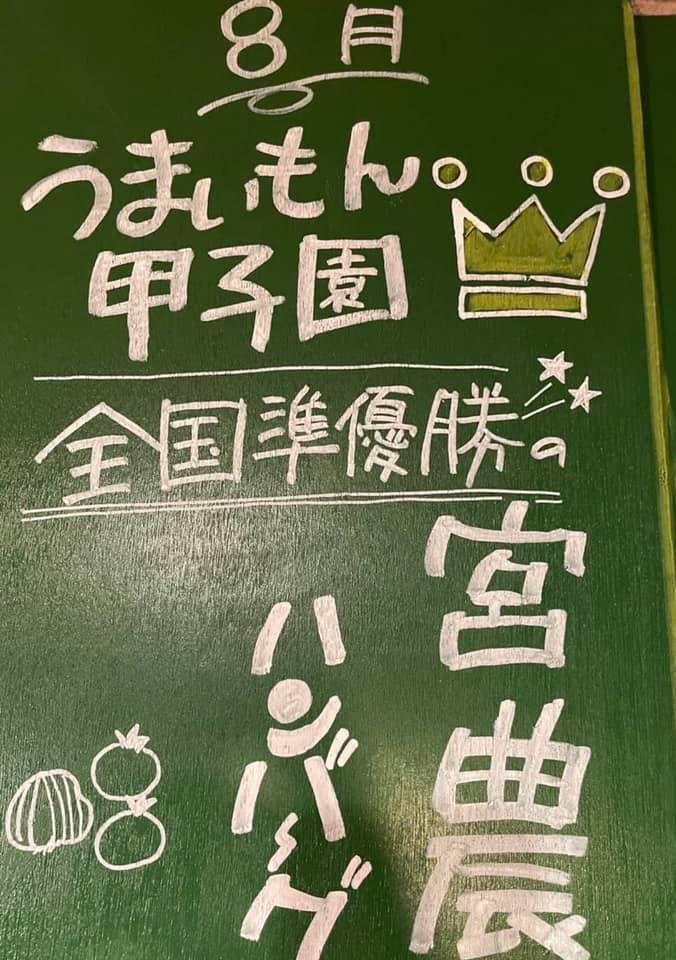 8月
うまいもん
甲子園
全国準優勝の
宮農
ハンバーグ